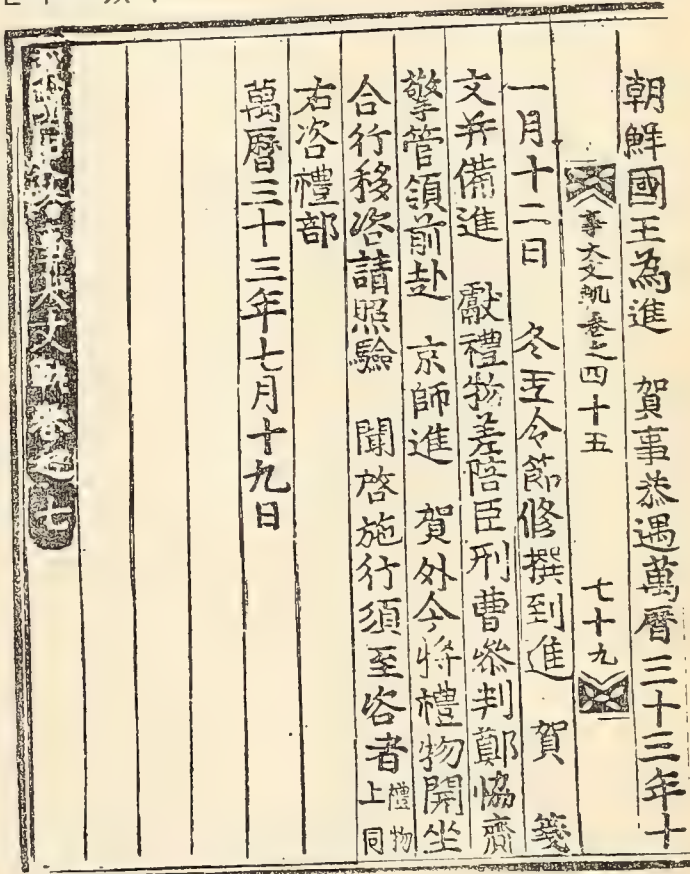 朝鮮國王為進 賀事恭遇萬曆三十三年十
事大文軌卷之四十五 七十九
一月十二日 冬至令節修撰到進 賀 箋
文并備進 獻禮物差陪臣刑曹叅判鄭恊齎
擎管領前赴 京師進 賀外今將禮物開坐
合行移咨請照驗 聞啓施行須至咨者 禮物上同
右咨禮部
萬曆三十三年七月十九日
事大文軌卷之